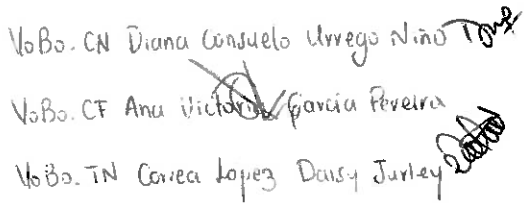 VoBo. CN Diana Consuelo Urrego Niño
VoBo. CF Ana Victoria García Pereira
VoBo. TN Correa Lopez Daisy Jurley